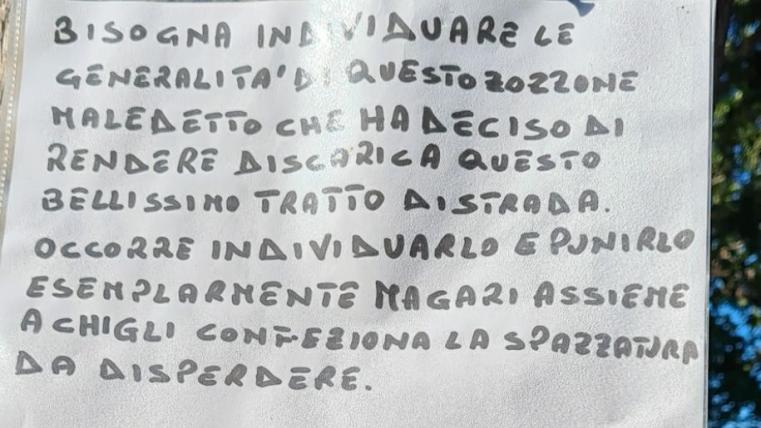 BISOGNA INDIVIDUARE LE
GENERALITA' DI QUESTO ZOZZONE
MALEDETTO CHE HA DECISO DI
RENDERE DISCARICA QUESTO
BELLISSIMO TRATTO DI STRADA.
OCCORRE INDIVIDUARLO E PUNIRLO
ESEMPLARMENTE MAGARI ASSIEME
A CHI GLI CONFEZIONA LA SPAZZATURA
DA DISPERDERE.